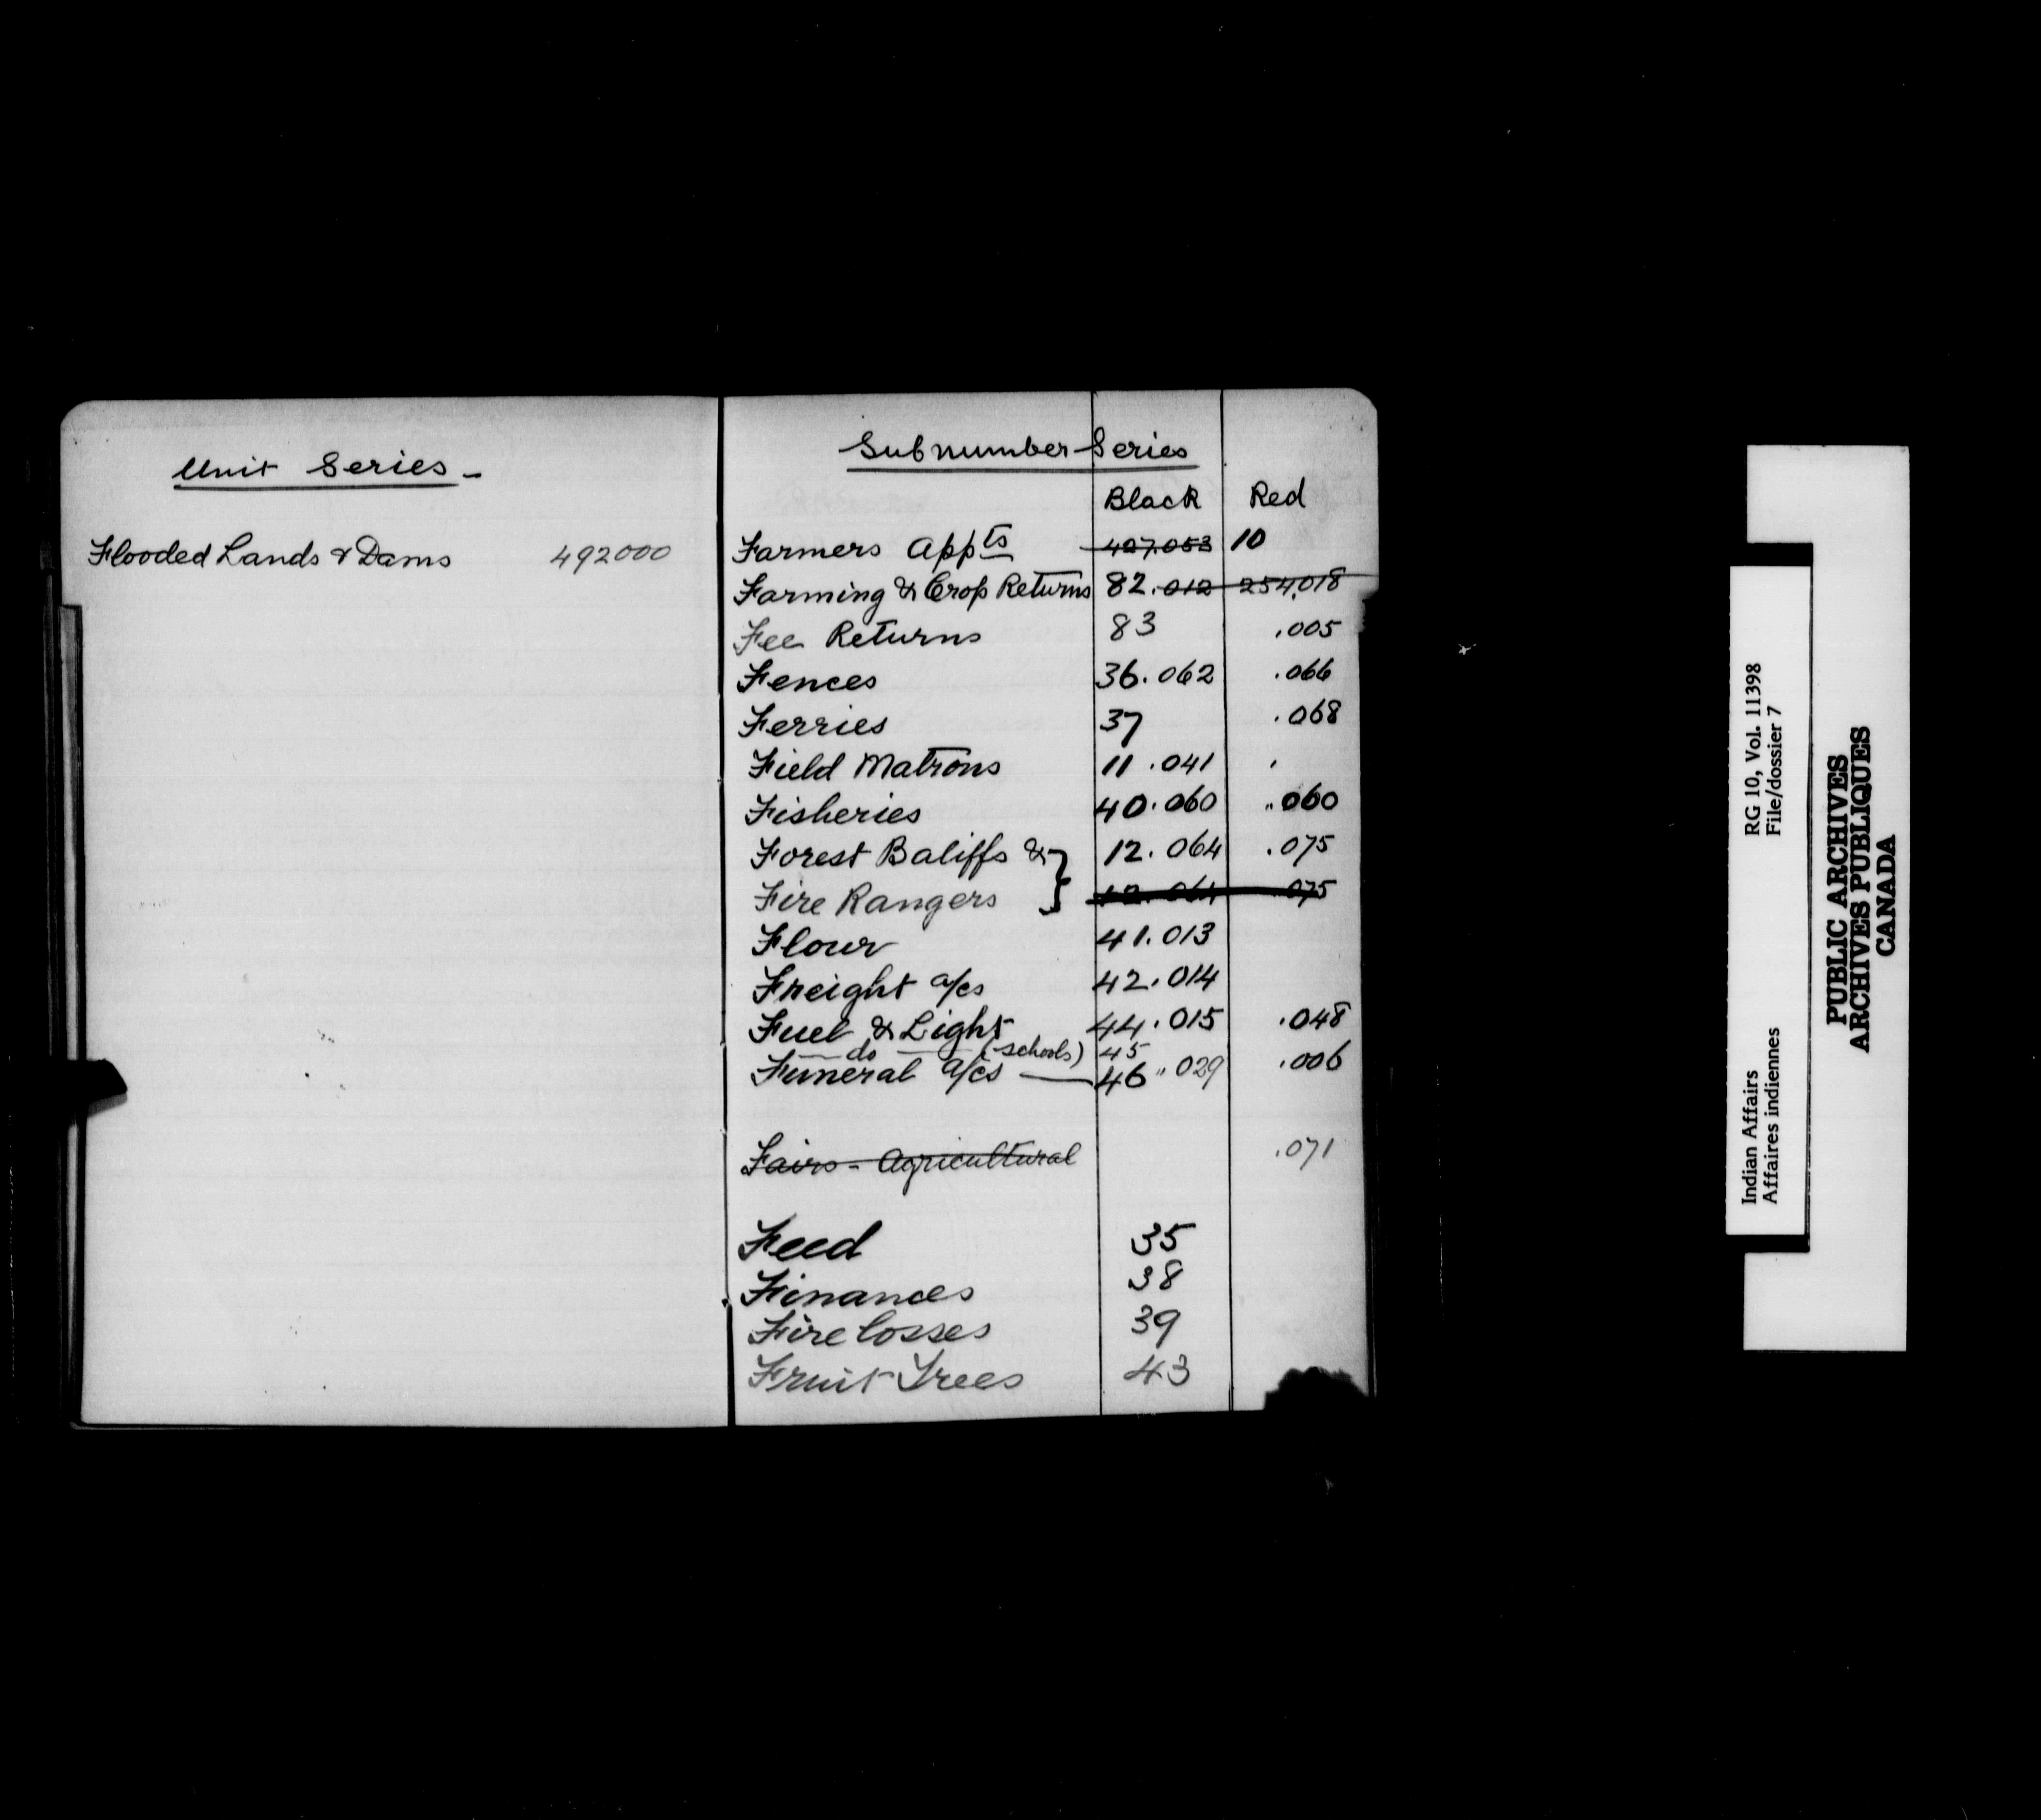 Unit Series -
Flooded Lands & Dams 492000
Subnumber Series
Black Red
Farmers Appts 407.053 10
Farming & Crop Returns 82.012 254.018
Fee Returns 83 .005
Fences 36.062 .066
Ferries 37 .068
Field Matrons 11.041 .
Fisheries 40.060 .060
Forest Baliffs & } 12.064 .075
Fire Rangers } 12.064 .075
Flour 41.013
Freight a/cs 42.014
Fuel & Light 44.015 .048
— do — (schools) 45
Funeral a/cs — 46 .029 .006
Fairs - Agricultural .071
Feed 35
Finances 38
Fire losses 39
Fruit Trees 43
Indian Affairs RG 10, Vol. 11398
Affaires indiennes File/dossier 7
PUBLIC ARCHIVES
ARCHIVES PUBLIQUES
CANADA